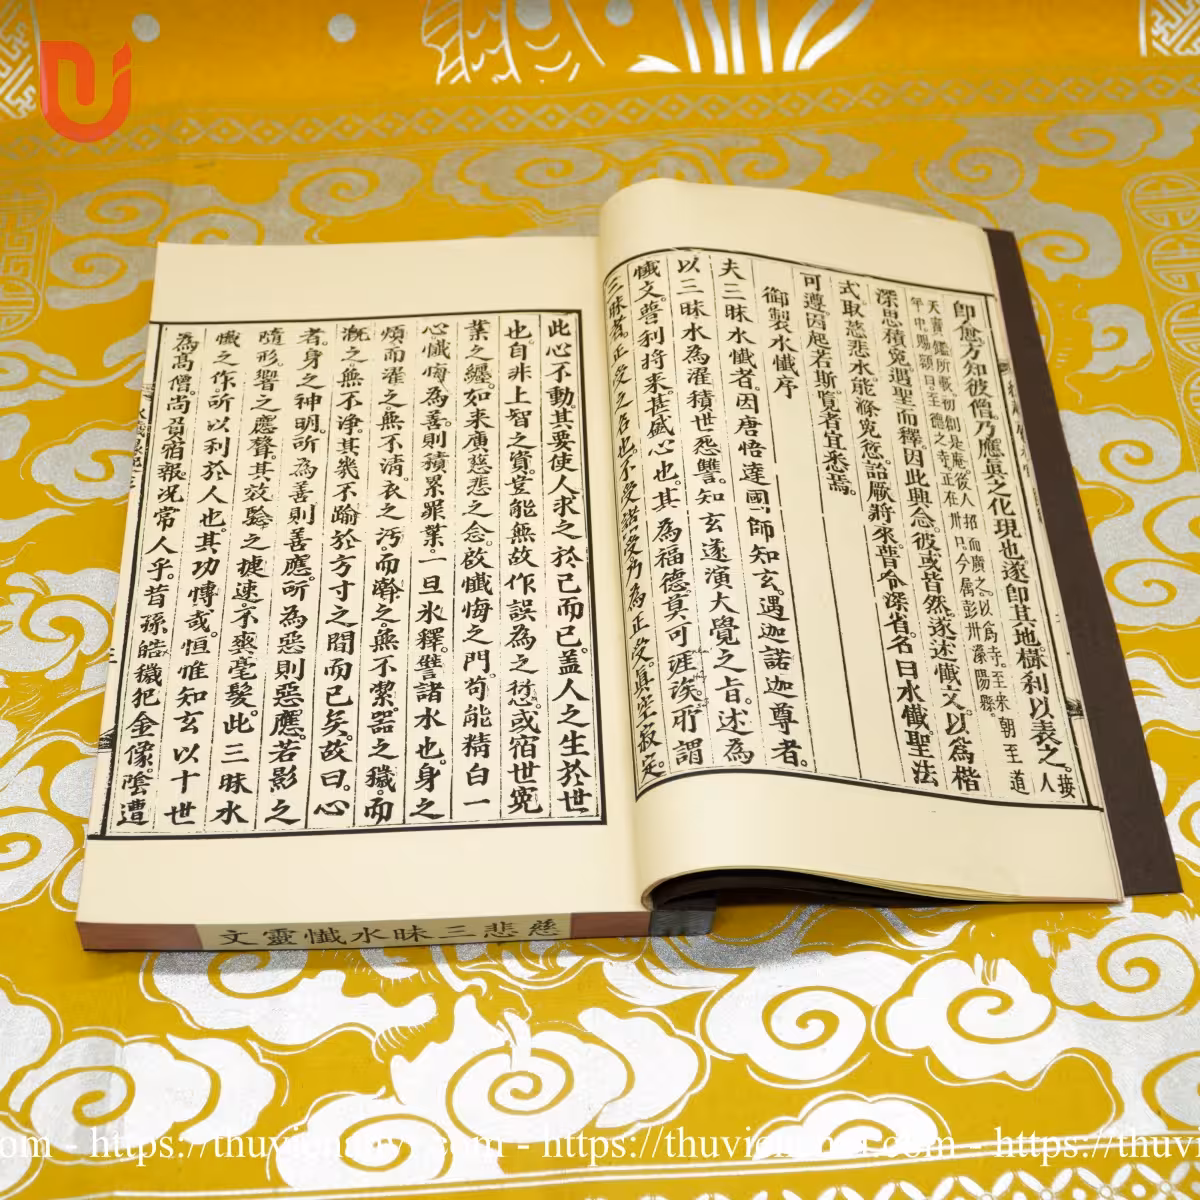 即愈方知彼僧乃應真之化現也。遂即其地樹刹以表之。人接
天寶鑑所載初創是庵後人招而廣之以爲寺至宋朝至道
年中賜額曰至德之寺正在
今屬彭州濛陽縣
深思積冤遇聖而釋因此興念彼或皆然。遂述懺文。以爲楷
式取慈悲水能滌冤愆詒厥將來。普令深省。名曰水懺。聖法
可遵。因起若斯。覽者宜悉焉。
御製水懺序
夫三昧水懺者。因唐悟達國師知玄。遇迦諾迦尊者。
以三昧水為濯積世怨讐。知玄遂演大覺之旨。述為
懺文。普利將來。甚盛心也。其為福德。莫可涯涘。所謂
三昧者。正受之名也。不受諸受。乃為正受。真空寂定。
此心不動。其要使人求之於己而已。蓋人之生於世
也。自非上智之資。豈能無故作誤為之愆。或宿世冤
業之纏。如來廣慈悲之念。啟懺悔之門。苟能精白一
心懺悔為善。則積累罪業。一旦氷釋。譬諸水也。身之
煩而濯之。無不清。衣之汚。而瀚之。無不潔。器之穢。而
溉之。無不淨。其幾不踰於方寸之間而已矣。故曰。心
者。身之神明。所為善則善應。所為惡則惡應。若影之
隨形。響之應聲。其效驗之捷速。不爽毫髮。此三昧水
懺之作。所以利於人也。其功愽哉。恒惟知玄以十世
為高僧。尚負宿報。况常人乎。昔孫皓穢犯金像。陰遭
慈悲三昧水懺靈文
https://thuvien